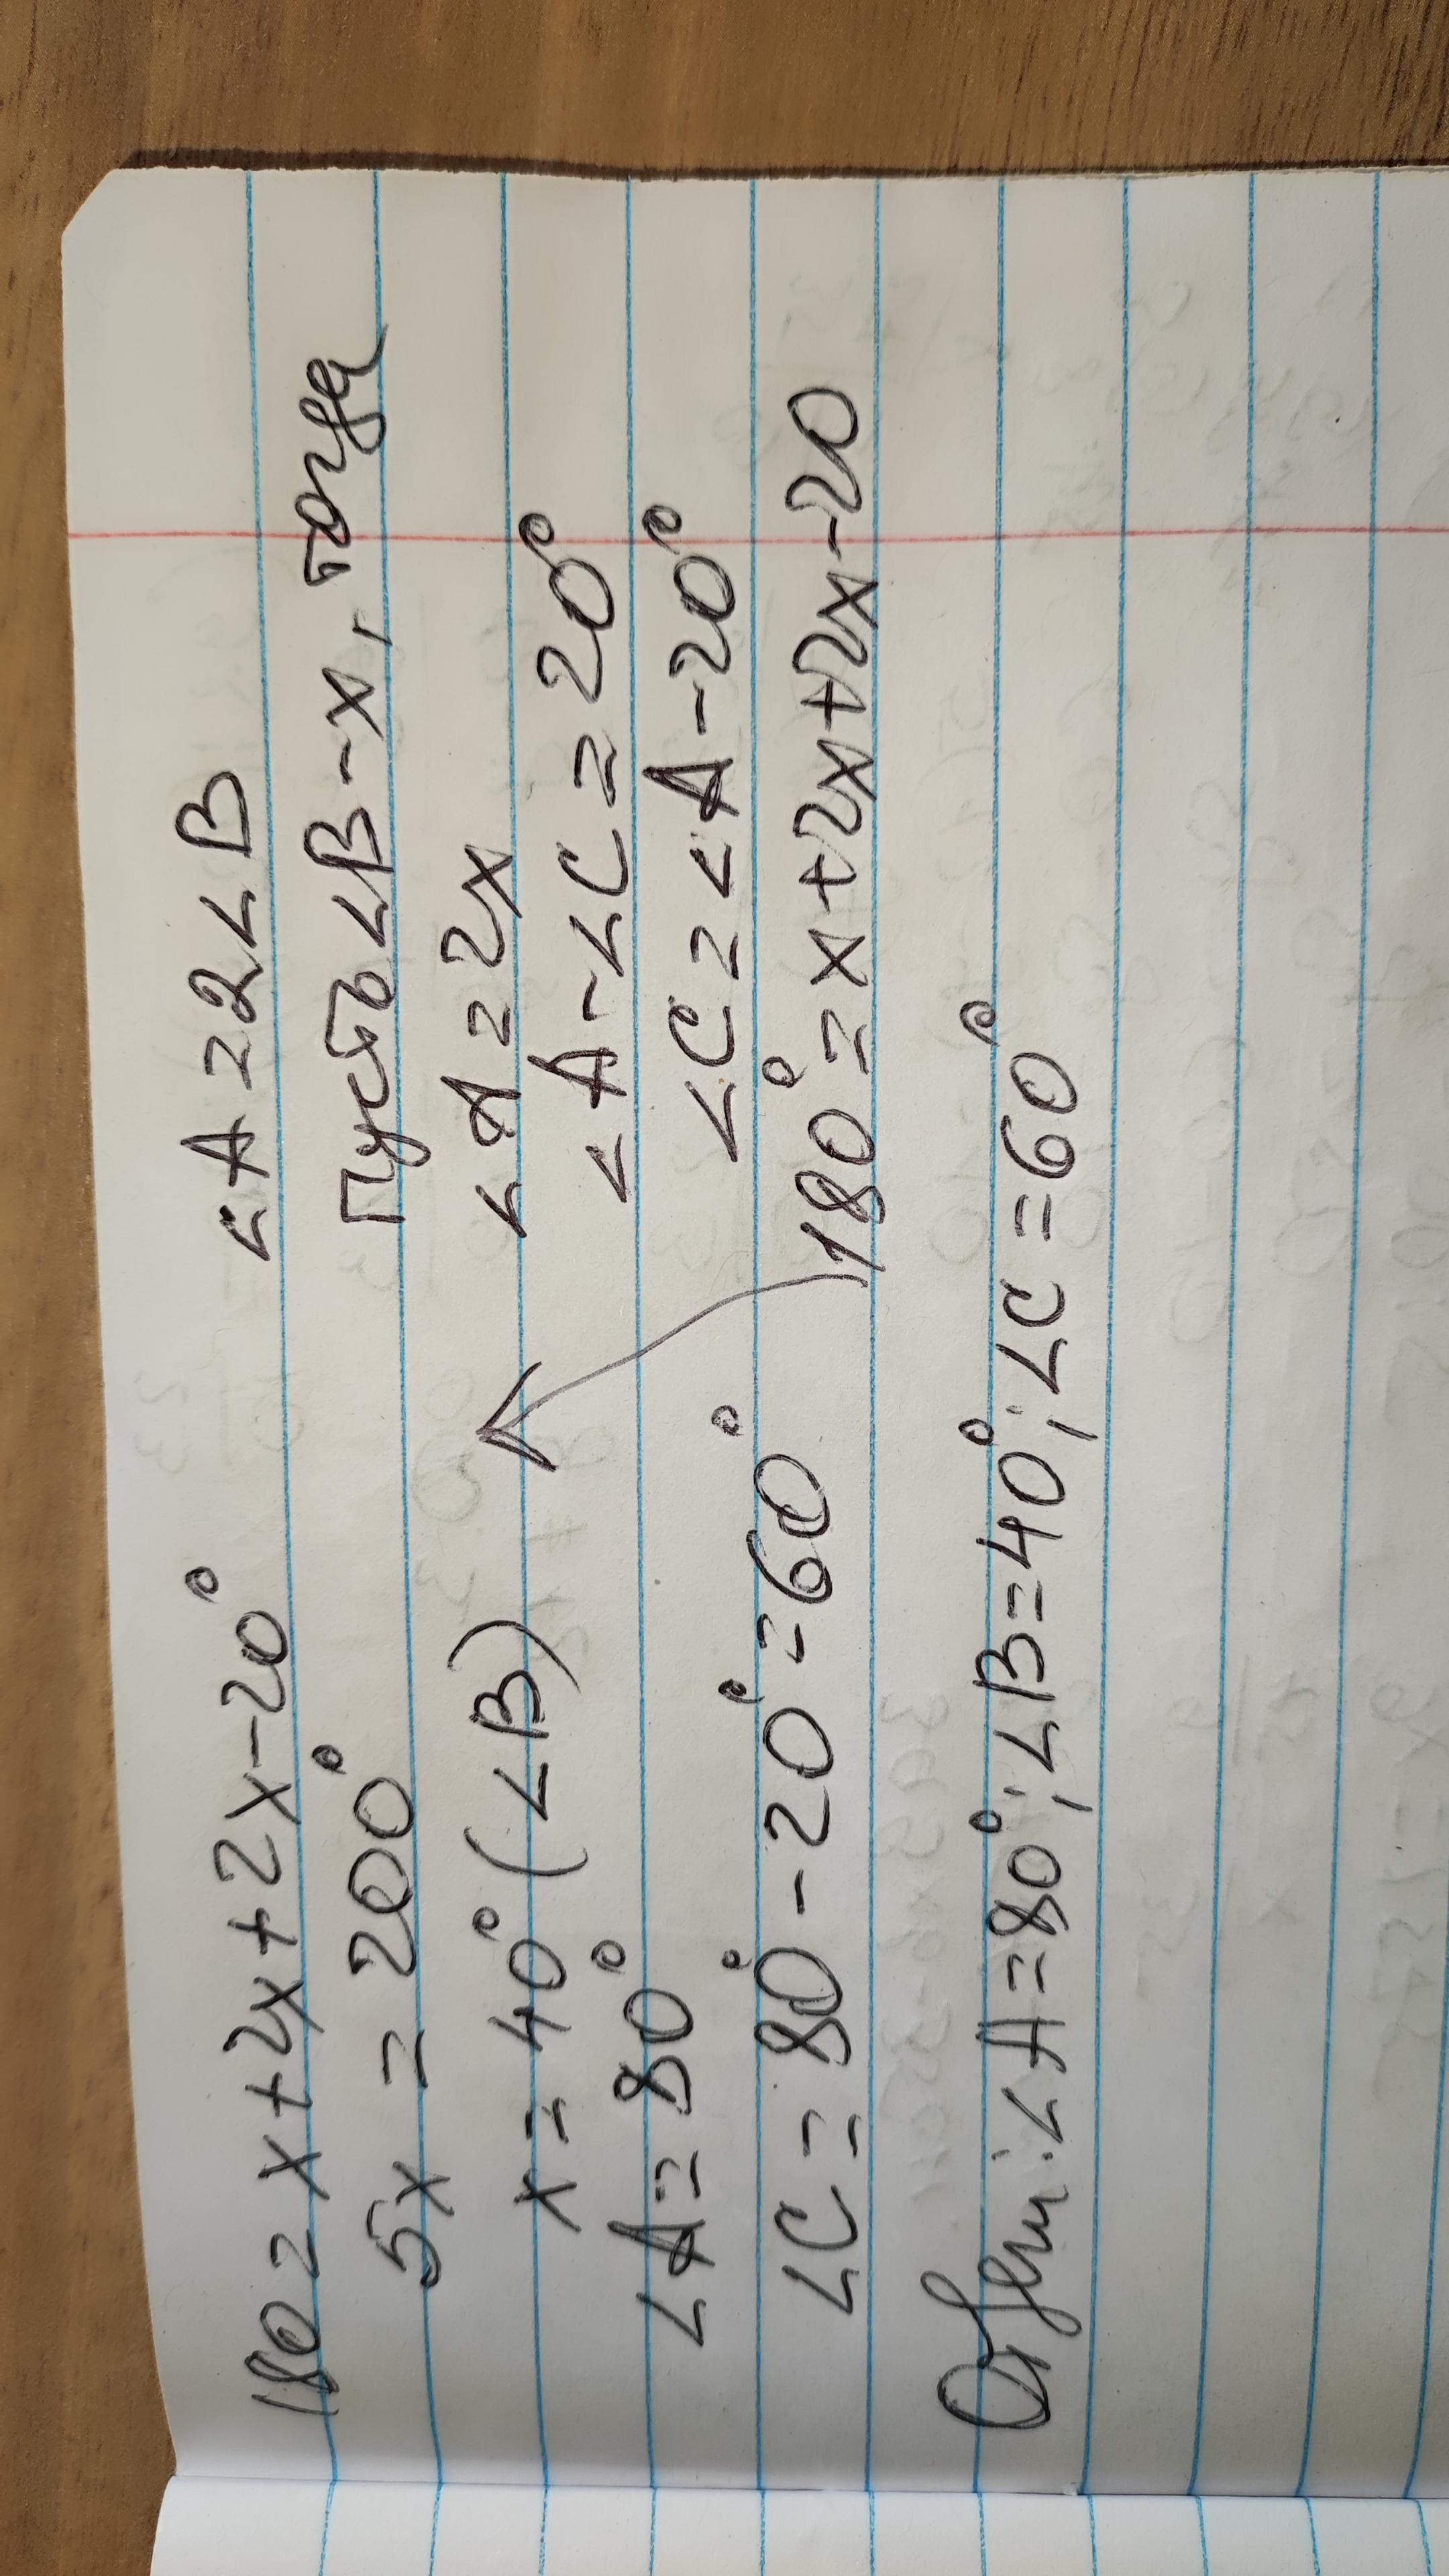 ∠A=2∠B
Пусть ∠B-x, тогда
∠A=2x
∠A-∠C=20°
∠C=∠A-20°
180°=x+2x+2x-20
180=x+2x+2x-20°
5x=200°
x=40°(∠B)
∠A=80°
∠C=80°-20°=60°
Ответ:∠A=80°;∠B=40°;∠C=60°